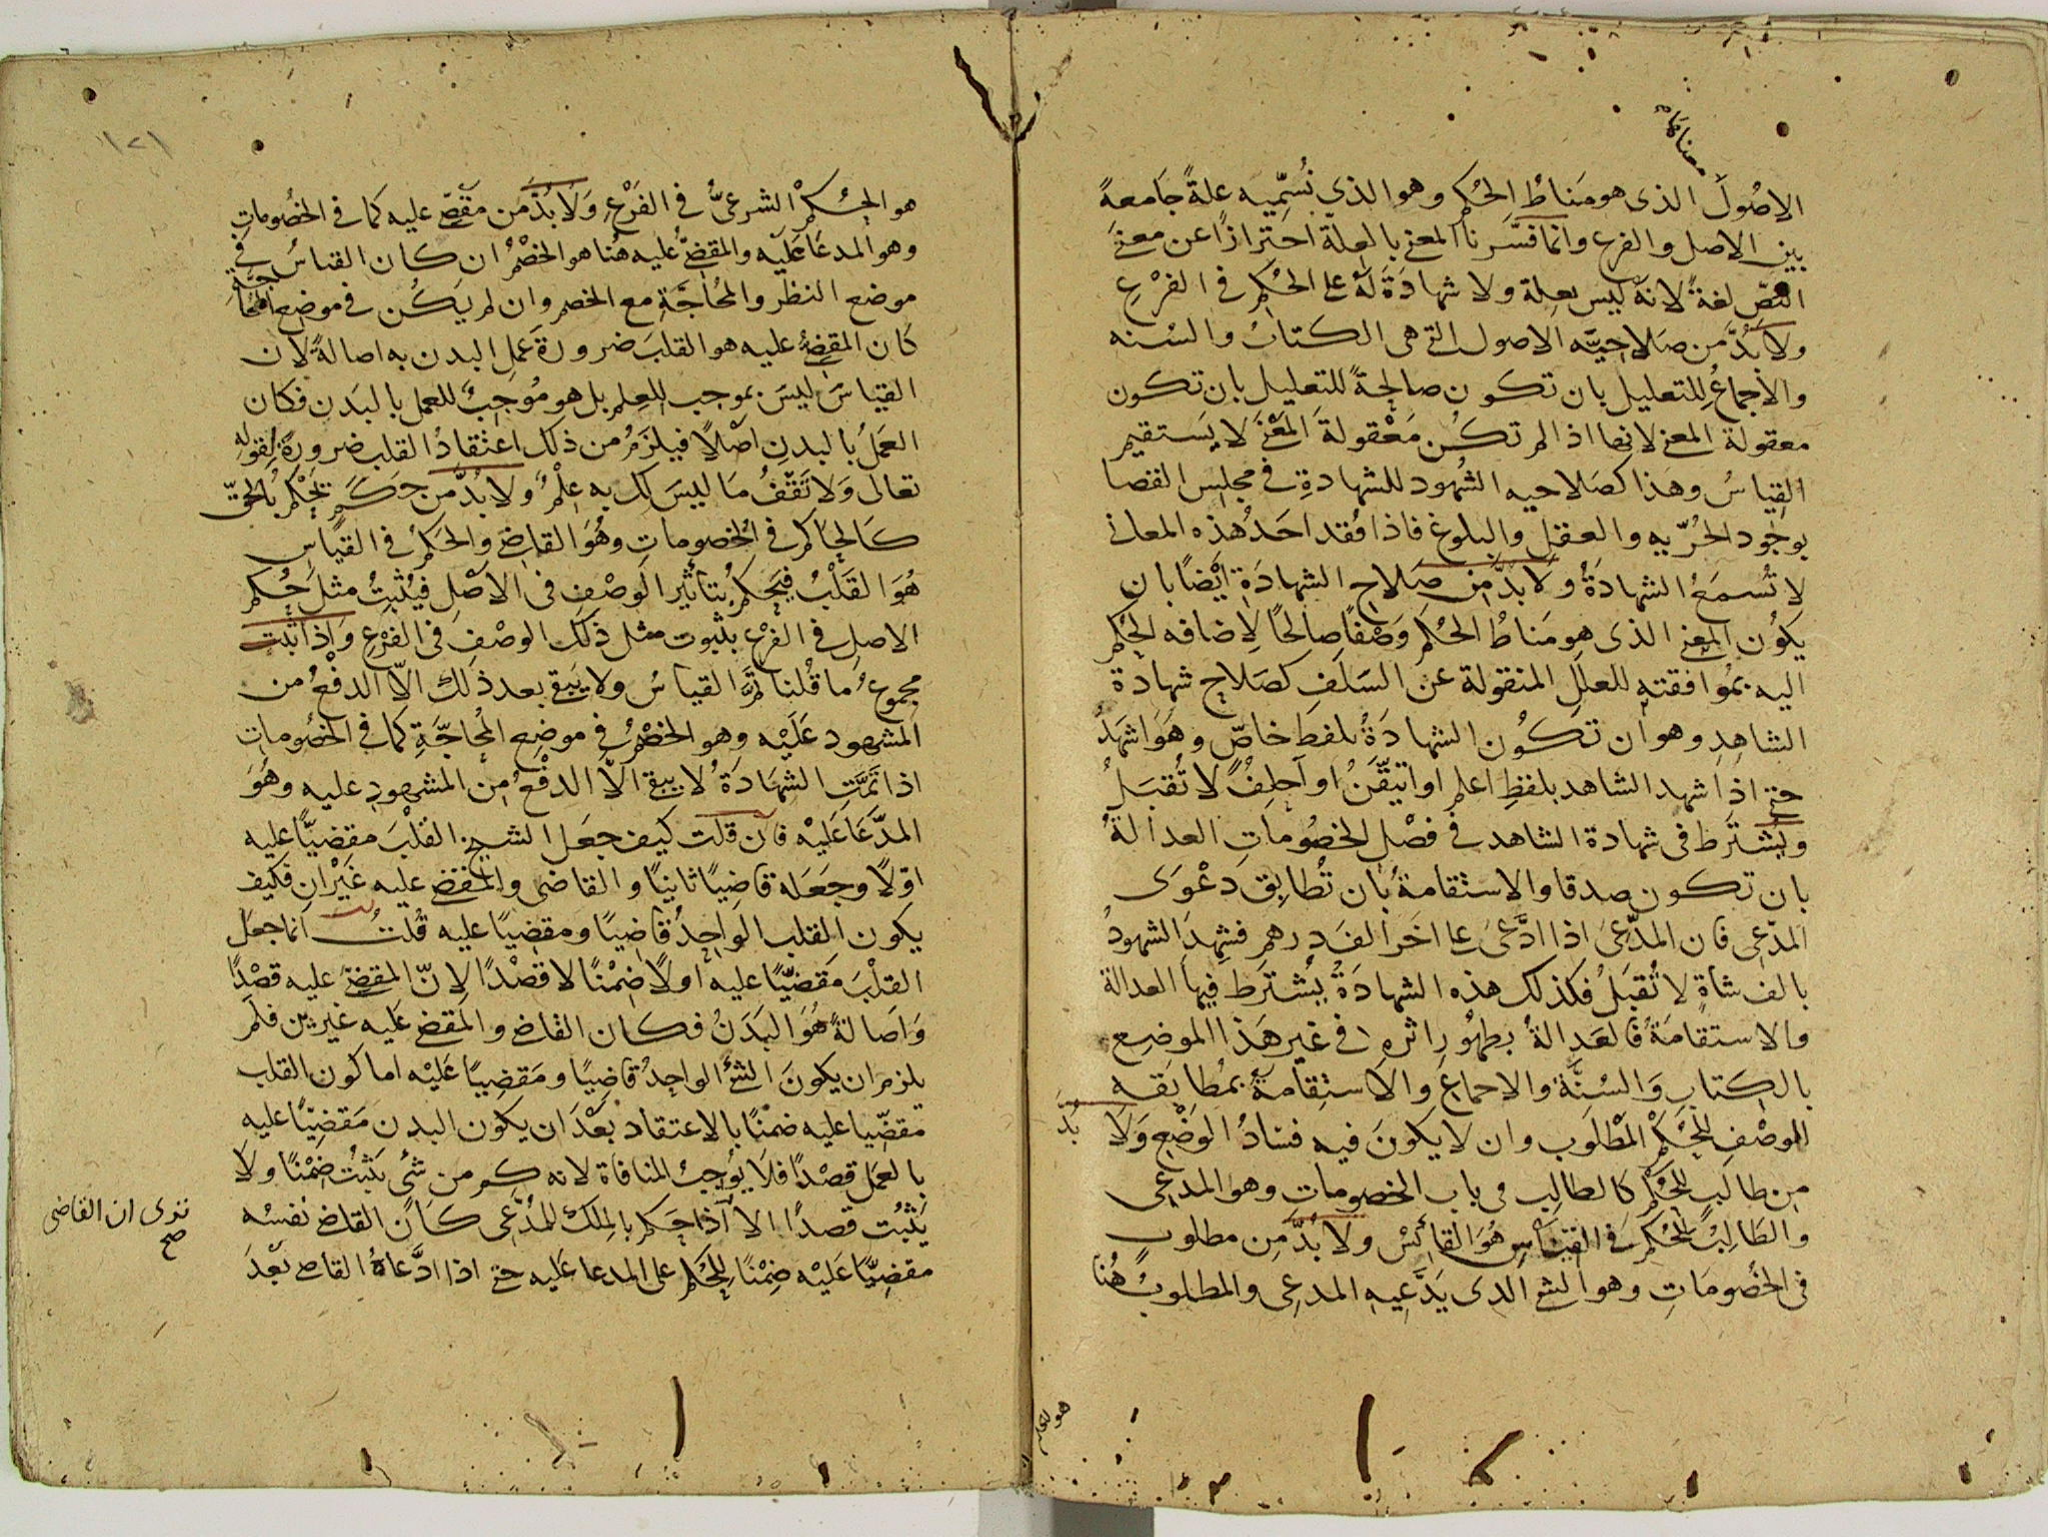 معناها
الاصُول الذى هو مَناطُ الحُكم وهو الذى نُسمِّيه علةً جَامعةً
بين الاصل والفرع وانما فسَّرنا المعنى بالعلّة احترازًا عن معنى
النصّ لغةً لانه ليس بعلة ولا شهادَةَ لهُ على الحُكم فى الفَرْعِ
ولا بُدَّ من صَلاحيَّه الاصول التى هى الكتابُ والسُنه
والاجماعُ للتعليل بان تكون صالحةً للتعليل بان تكون
معقولة المعنى لانها اذا لم تكُن مَعْقولةَ المَعْنَى لا يَستقيم
القياسُ وهذا كصَلاحيه الشُهود للشهادةِ فى مجلس القضا
بوجُود الحُرّيه والعقل والبلوغ فاذا فُقد احَدُ هذه المعانى
لا تُسمَعُ الشهادَةُ ولا بدَّ من صَلاحِ الشهادَةِ ايْضًا بان
يكوُن المعنى الذى هو مَناطُ الحُكم وَصْفًا صالحًا لاضافه الحُكم
اليه بمُوافقته للعللِ المنقولة عن السَلَف كصَلاح شهادة
الشاهدِ وهو ان تكُون الشهادَةُ بلفظٍ خاصٍّ وهُوَ اشهَدُ
حتى اذا شهد الشاهد بلفظِ اعلم او اتيقّنُ او احلِفُ لا تُقبَلُ
ويُشترَط فى شهادة الشاهد فى فصْلِ الخصُوماتِ العدالةُ
بان تكون صدقا والاستقامةُ بان تُطابِقَ دعْوَى
المدّعِى فان المدّعىَ اذا ادَّعىَ على اخَرَ الفَ درهم فشهِدَ الشهودُ
بالف شاةٍ لا تُقبَلُ فكذلك هذه الشهادَةُ يُشترَط فيها العدالة
والاستقامَةُ فالعَدالةُ بظهُورِ اثره فى غير هَذا الموضِع
بالكتابِ وَالسُنَّة والاجماعَ والاستِقامةُ بمُطابَقه
الوصْفِ للحُكم المَطْلُوب وان لا يكونَ فيه فسَادُ الوَضْعِ وَلاَ
بُدَّ
من طالبٍ للحُكم كالطالِب فى باب الخصومات وهو المدعِى
والطَالِبُ للحُكم فى القيَاسِ هُوَ القائسُ ولا بُدَّ مِن مطلوبٍ
فى الخصُومَاتِ وهو الشئ الذى يَدَّعِيه المدعِى والمطلوبُ هُنا
هو الحكم
١٢١
هو الحُكْم الشرعىُّ فى الفَرْعِ وَلا بُدَّ مَن مقْضىٍّ عليه كما فى الخصُوماتِ
وهو المدعَا عَليْه والمقضىُّ عَليه هُنا هو الخصْمُ ان كان القياسُ فى
موضع النظر والمُحاجَّةِ مع الخصم وان لم يَكُن فى موضع المحاجّة
كان المقضىُّ عليه هو القلبَ ضرورةَ عَملِ البدن به اصالةً لان
القياسَ ليسَ بموجب للعِلم بل هو مُوْجِبٌ للعمل بالبَدن فكان
العَمَلُ بالبدنِ اصْلاً فيلزمُ من ذلك اعتقادُ القلب ضرورةً لقوله
تعالى وَلا تَقْفُ مَا ليسَ لك به عِلْمٌ ولا بُدَّ من حَكَمٍ يَحْكم بُالحقّ
كالحاكم فى الخصوماتِ وهُوَ القاضى والحَكَمُ فى القياسِ
هُوَ القَلْبُ فيَحكم بُتأثير الوَصْفِ فى الاَصْلِ فيُثْبتُ مثل حُكم
الاصلِ فى الفرْع بثبُوت مثل ذلك الوصْفِ فى الفَرْعِ وَاِذا ثَبت
مجموعُ ما قُلنا تَمَّ القياسُ ولا يَبقى بعد ذلك الاّ الدفْعُ من
المشهود عَلَيْه وهو الخصْمُ فى موضع المُحاجَّةِ كما فى الخصُومات
اذا تَمَّتِ الشهَادَةُ لا يبقى الاّ الدفْعُ مِن المشهودِ عليه وهُوَ
المدَّعَا عَلَيْه فان قلت كيف جعَل الشيخ القلْبَ مقضيًّا عليه
اوّلاً وجَعَله قاضِيًا ثانيًا والقاضى والمقضى عليه غَيْران فكيف
يكون القلب الواحِدُ قاضِيًا ومقضِيًا عليه قُلتُ انما جعَل
القلْبَ مَقضِيًّا عليه اولاً ضِمْنًا لا قصْدًا لانّ المقضىَّ عليه قصْدًا
وَاصَالةً هُوَ البَدَنُ فكان القاضى والمقضى عَليه غيرين فلَم
يلزم ان يكونَ الشئُ الواحِدُ قاضِيًا ومَقضِيًا عَلَيْه اما كون القلب
مقضيّا عليه ضمْنًا بالاعتقاد بعْدَ ان يكون البدن مَقضِيًّا عليه
بالعمَل قصْدًا فلا يُوجِبُ المنافاة لانه كم من شئ يَثْبُتُ ضِمْنًا ولا
يَثْبُت قصدًا الا اذا حَكم بالمِلك للمُدَّعِى كانَ القاضى نفسُه
ترى ان القاضى
صح
مقضِيًّا عَلَيْه ضِمْنًا للحُكم على المدعا عَليه حتى اذا ادَّعَاهُ القاضى بَعْدَ